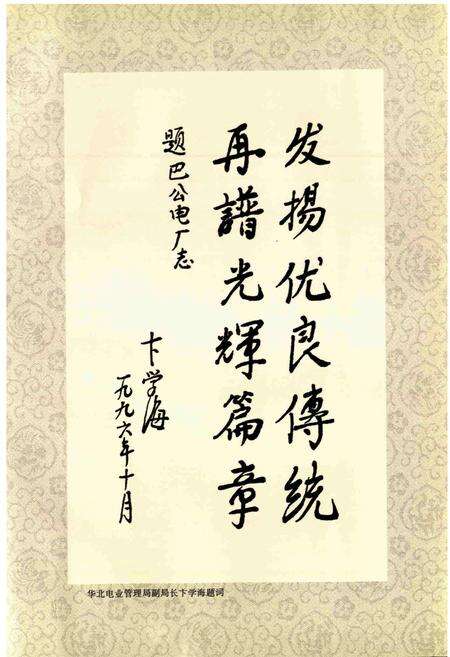 发揚优良傳統
再譜光輝篇章
题巴公电厂志
卞学海
一九九六年十月
华北电业管理局副局长卞学海题词